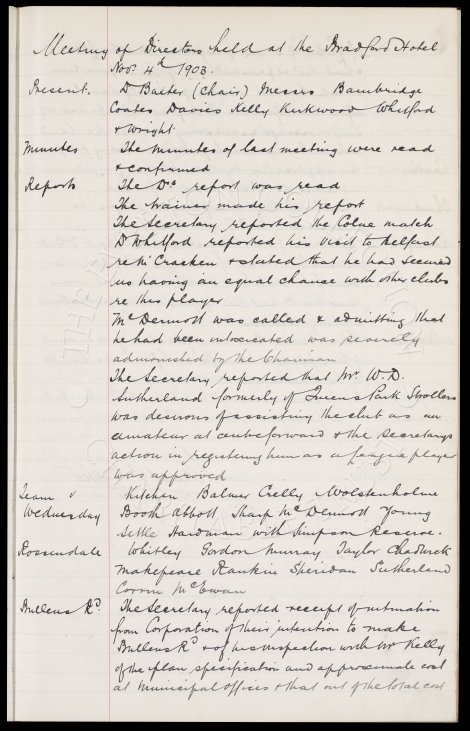 Meeting of Directors held at the Bradford Hotel
Nov. 4th 1903
Present. Dr Baxter (Chair) Messrs Bainbridge
Coates Davies Kelly Kirkwood Whitford
& Wright.
Minutes The Minutes of last meeting were read
& confirmed
Reports The Drs report was read
The trainer made his report
The Secretary reported the Colne match
Dr Whitford reported his visit to Belfast
re McCracken & stated that he had secured
us having an equal chance with other clubs
re this player
McDermott was called & admitting that
he had been intoxicated was severely
admonished by the Chairman
The Secretary reported that Mr. W.D.
Sutherland formerly of Queens Park Strollers
was desirous of assisting the club as an
amateur at centreforward & the Secretarys
action in registering him as a league player
was approved
Team v Kitchen Balmer Crelly Wolstenholme
Wednesday Booth Abbott Sharp McDermott Young
Settle Hardman with Simpson Reserve.
Rossendale Whitley Gordon Murray Taylor Chadwick
Makepeace Rankin Sheridan Sutherland
Corrin McEwan
Bullens Rd. The Secretary reported receipt of intimation
from Corporation of their intention to make
Bullens Rd & of his inspection with Mr Kelly
of the plan specification and approximate cost
at Municipal offices & that out of the total cost